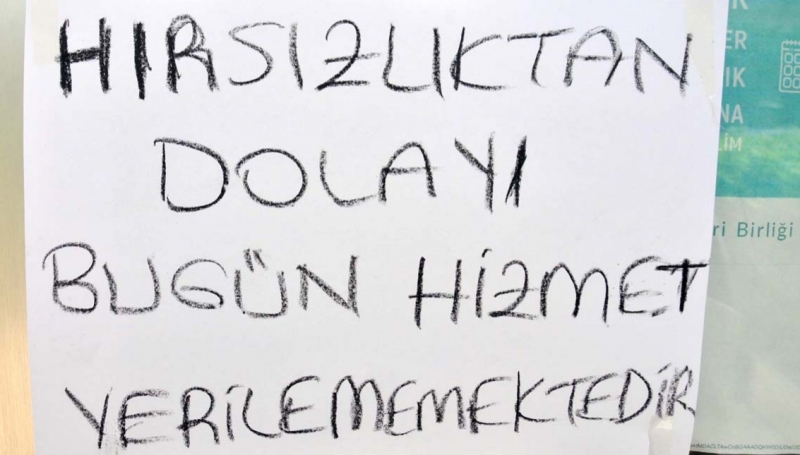 HIRSIZLIKTAN
DOLAYI
BUGÜN HİZMET
YERİLEMEMEKTEDİR
ri Birliği